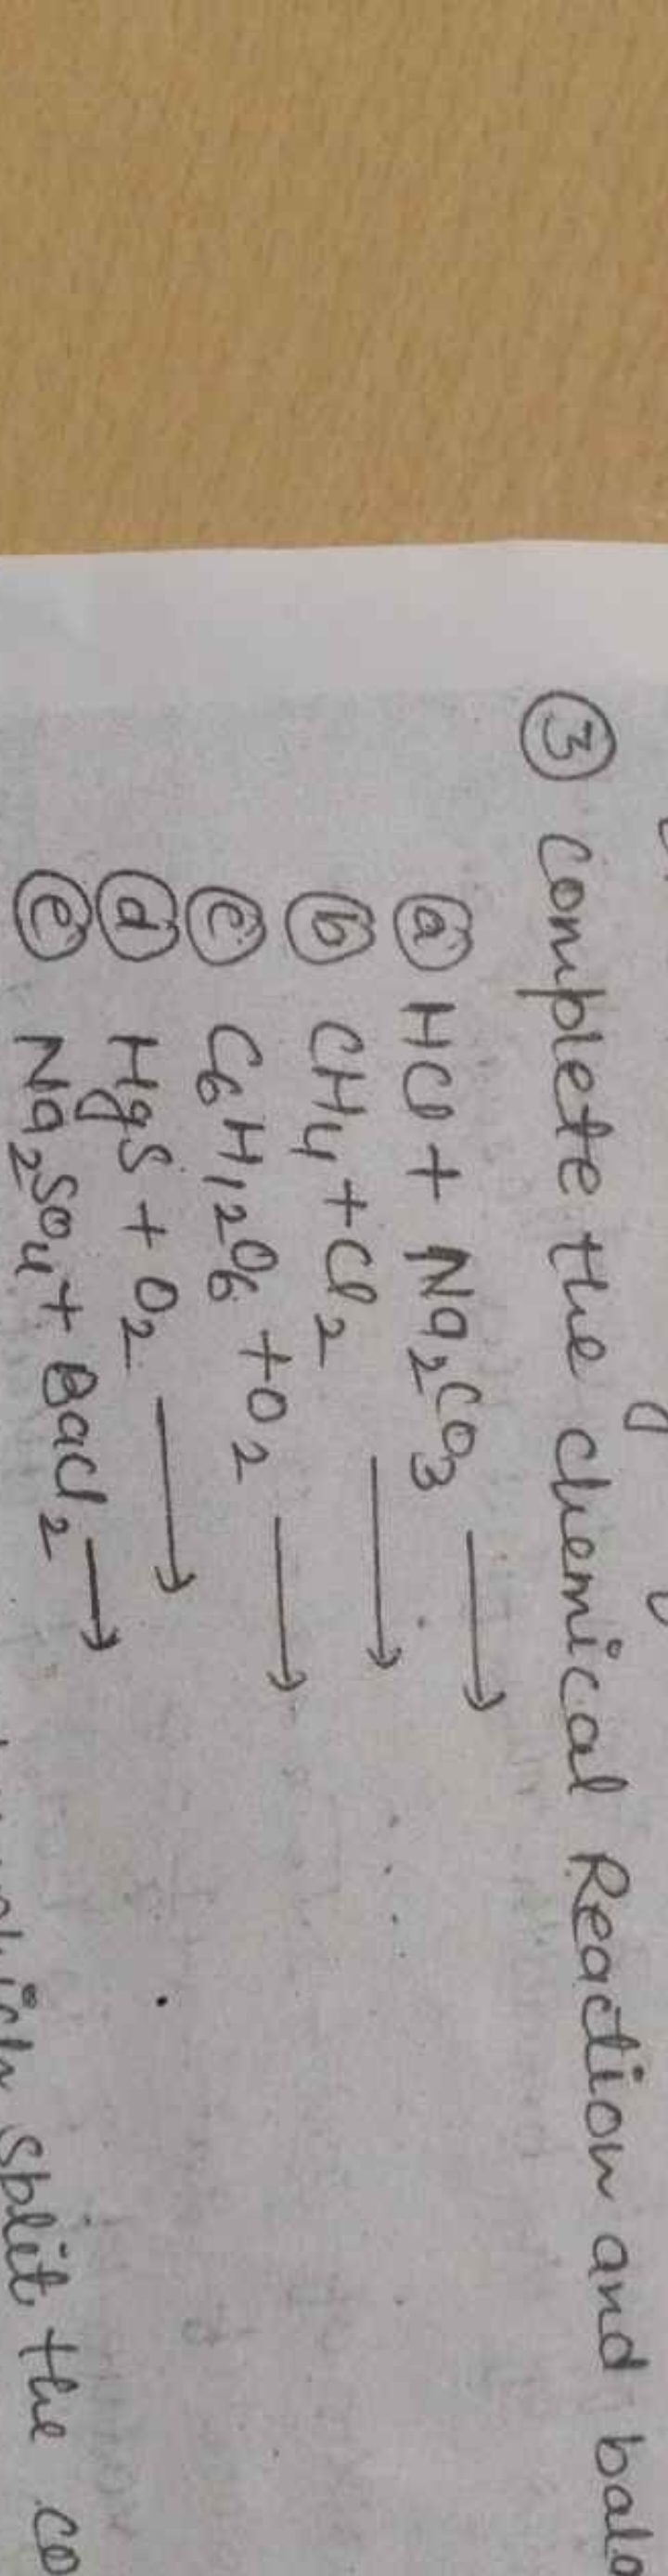 ③ Complete the chemical Reaction and bala
ⓐ HCl + Na₂CO₃ →
ⓑ CH₄ + Cl₂ →
ⓒ C₆H₁₂O₆ + O₂ →
ⓓ HgS + O₂ →
ⓔ Na₂SO₄ + BaCl₂ →
split the